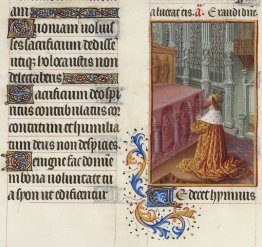 Quoniam si voluiſ
ſes ſacrificium dediſſem
utique holocauſtis non
delectaberis
Sacrificium deo ſpi
ritus contribulatus cor
contritum et humilia
tum deus non deſpicies
Benigne fac domine
in bona voluntate tua
ſyon ut edificentur
a luctat eis. a. Exaudi dne
Te decet hymnus